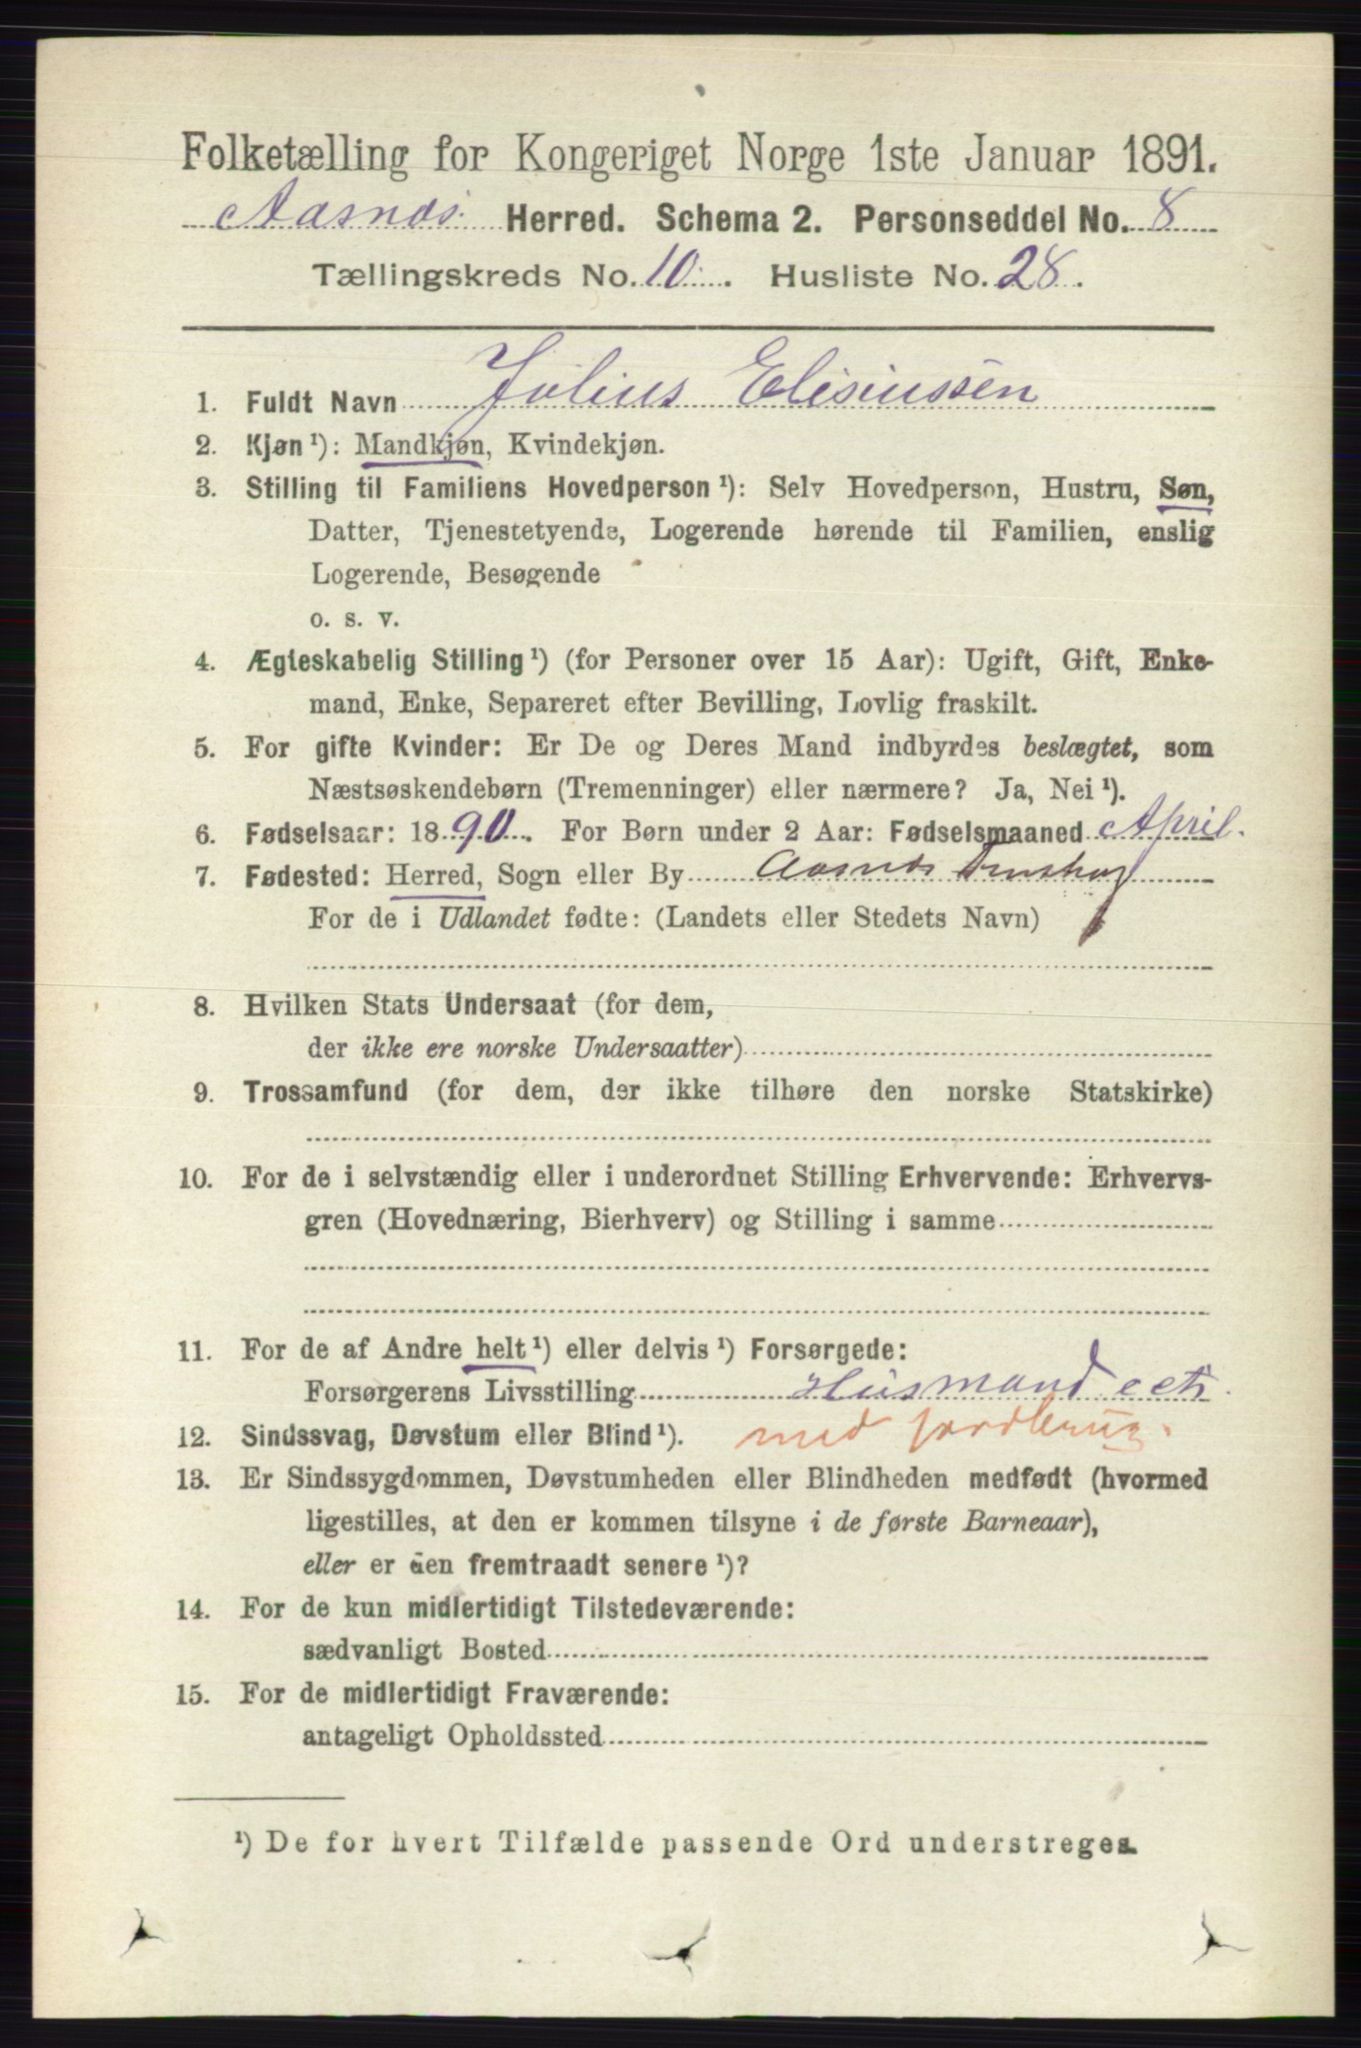 Folketælling for Kongeriget Norge 1ste Januar 1891.
Aasnæs. Herred. Schema 2. Personseddel No. 8
Tællingskreds No. 10. Husliste No. 28.
1. Fuldt Navn Julius Elisiussen
2. Kjøn ¹): Mandkjøn, Kvindekjøn.
3. Stilling til Familiens Hovedperson ¹): Selv Hovedperson, Hustru, Søn,
Datter, Tjenestetyende, Logerende hørende til Familien, enslig
Logerende, Besøgende
o. s. v.
4. Ægteskabelig Stilling ¹) (for Personer over 15 Aar): Ugift, Gift, Enke-
mand, Enke, Separeret efter Bevilling, Lovlig fraskilt.
5. For gifte Kvinder: Er De og Deres Mand indbyrdes beslægtet, som
Næstsøskendebørn (Tremenninger) eller nærmere? Ja, Nei ¹).
6. Fødselsaar: 1890. For Børn under 2 Aar: Fødselsmaaned April.
7. Fødested: Herred, Sogn eller By Aasnæs
For de i Udlandet fødte: (Landets eller Stedets Navn)
8. Hvilken Stats Undersaat (for dem,
der ikke ere norske Undersaatter)
9. Trossamfund (for dem, der ikke tilhøre den norske Statskirke)
10. For de i selvstændig eller i underordnet Stilling Erhvervende: Erhvervs-
gren (Hovednæring, Bierhverv) og Stilling i samme
11. For de af Andre helt ¹) eller delvis ¹) Forsørgede:
Forsørgerens Livsstilling Husmand
12. Sindssvag, Døvstum eller Blind ¹). med jordbrug.
13. Er Sindssygdommen, Døvstumheden eller Blindheden medfødt (hvormed
ligestilles, at den er kommen tilsyne i de første Barneaar),
eller er den fremtraadt senere ¹)?
14. For de kun midlertidigt Tilstedeværende:
sædvanligt Bosted
15. For de midlertidigt Fraværende:
antageligt Opholdssted
¹) De for hvert Tilfælde passende Ord understreges.